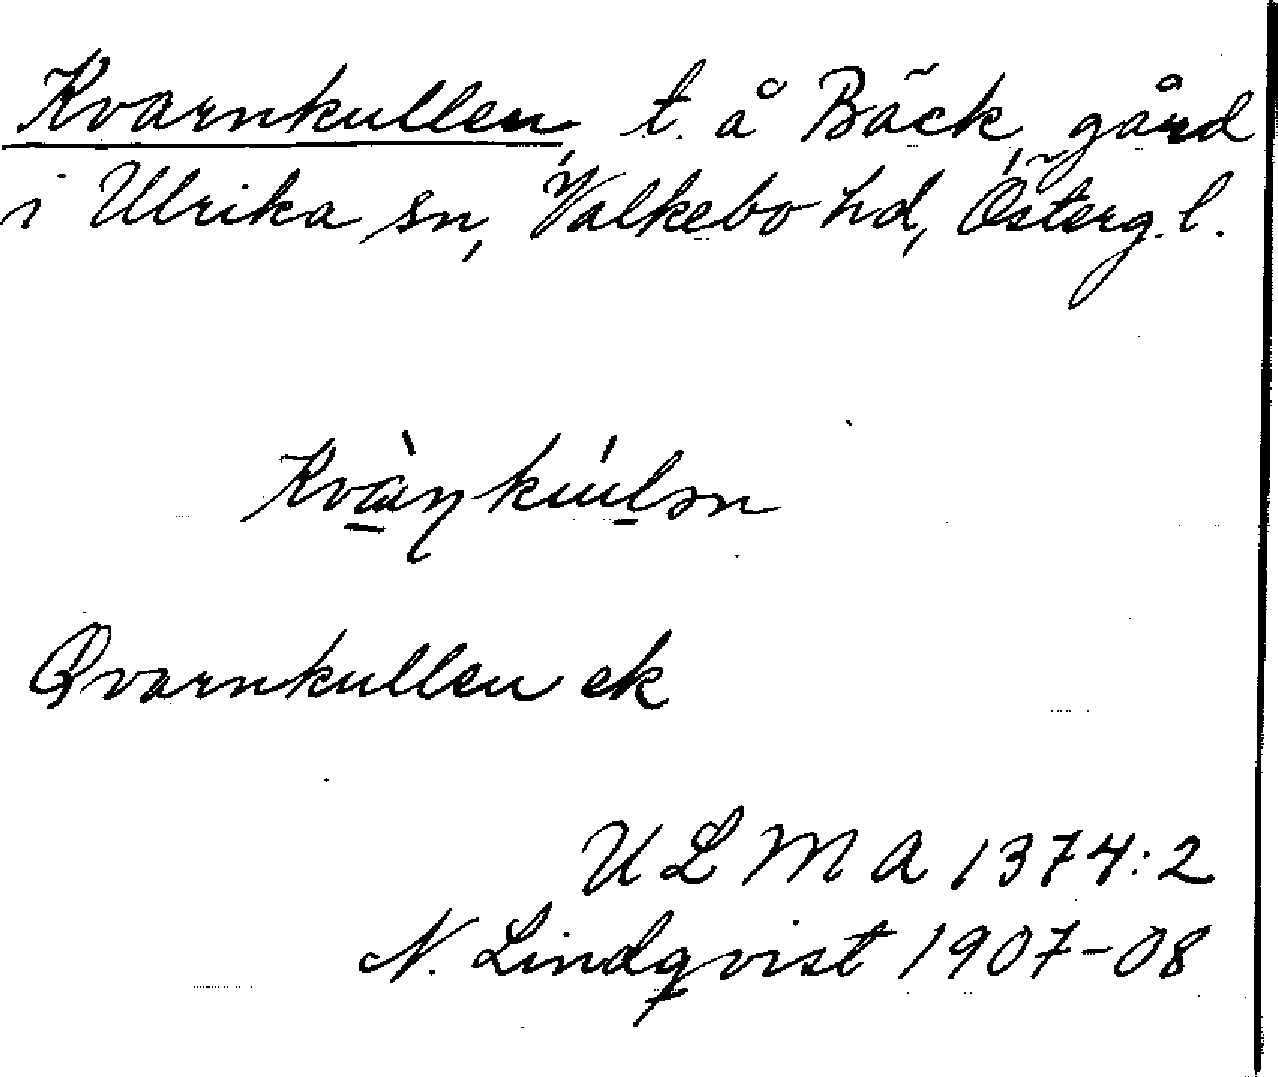 Kvarnkullen, t. å Bäck, gård
i Ulrika sn, Valkebo hd, Österg. l.
Qvarnkullen ek
ULMA 1374:2
N. Lindqvist 1907-08